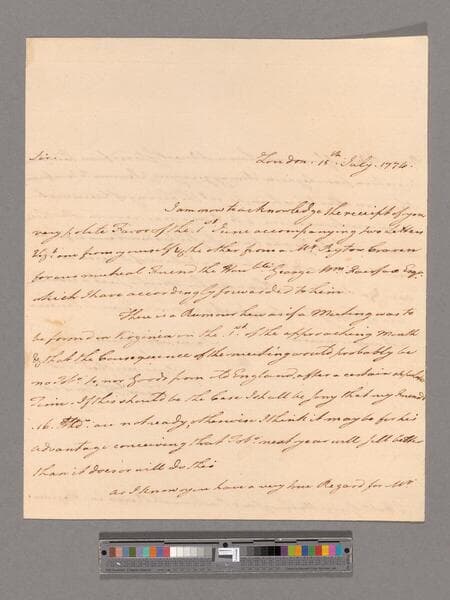 Sir
London. 15th July. 1774.
I am now to acknowledge the receipt of your
very polite Favor of the 1st June accompanying two Letters
Vizt. one from yourself & the other from a Mr.
for our mutual Friend the Honble. George Wm. Fairfax Esqr.
which I have accordingly forwarded to him.
There is a Rumour here as if a Meeting was to
be formed in Virginia on the 1st of the approaching Month
& that the Consequence of the meeting would probably be
no Tobo. to, nor Goods from England after a certain
Time. If this should be the Case I shall be sorry that my Friend's
16 Hhds. are not ready, otherwise I think it may be for his
advantage conceiving that Tobo. next year will sell better
than it does or will do this
as I know you have a very true Regard for Mr.